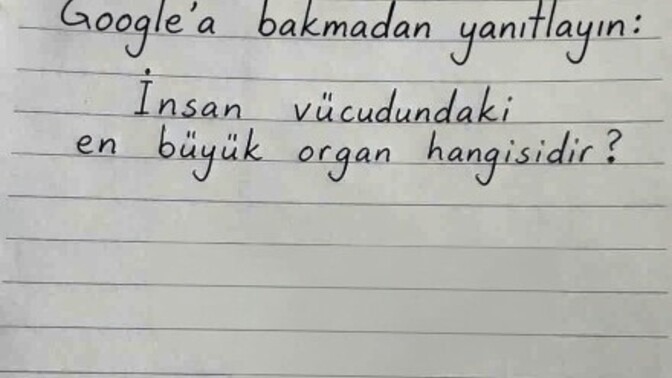 Google'a bakmadan yanıtlayın:
İnsan vücudundaki
en büyük organ hangisidir?